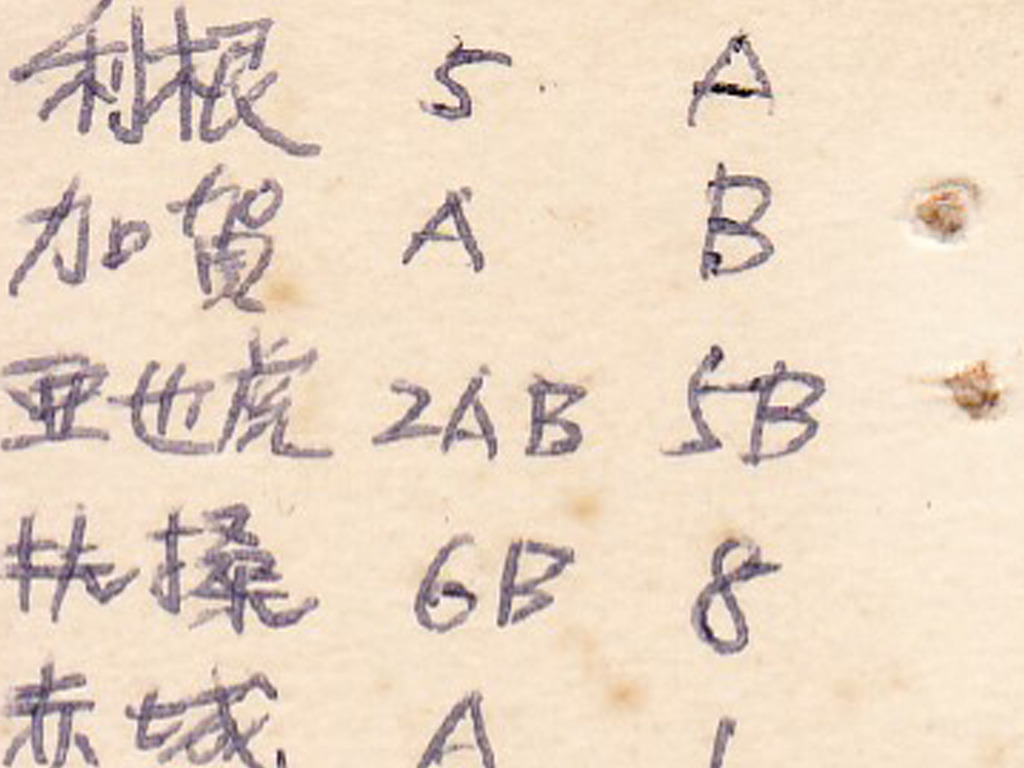 利根 5 A
加賀 A B
亜也虎 2AB 5B
扶搡 6B 8
赤城 A 1